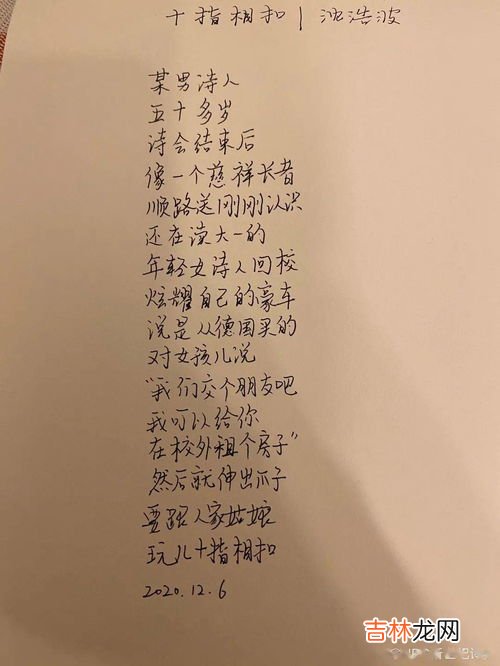 十指相扣 | 沈浩波
某男诗人
五十多岁
诗会结束后
像一个慈祥长者
顺路送刚刚认识
还在读大一的
年轻女诗人回校
炫耀自己的豪车
说是从德国买的
对女孩儿说
“我们交个朋友吧
我可以给你
在校外租个房子”
然后就伸出爪子
要跟人家姑娘
玩儿十指相扣
2020.12.6
吉林龙网
www.jldragon.com